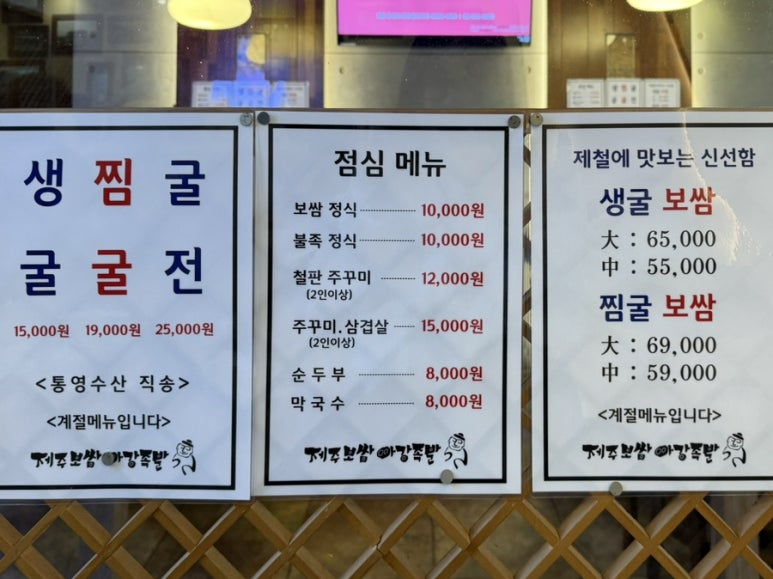 생 찜 굴
굴 굴 전
15,000원 19,000원 25,000원
<통영수산 직송>
<계절메뉴입니다>
제주보쌈 마왕족발
점심 메뉴
보쌈 정식 10,000원
불족 정식 10,000원
철판 주꾸미 12,000원
(2인이상)
주꾸미.삼겹살 15,000원
(2인이상)
순두부 8,000원
막국수 8,000원
제주보쌈 마왕족발
제철에 맛보는 신선함
생굴 보쌈
大 : 65,000
中 : 55,000
찜굴 보쌈
大 : 69,000
中 : 59,000
<계절메뉴입니다>
제주보쌈 마왕족발